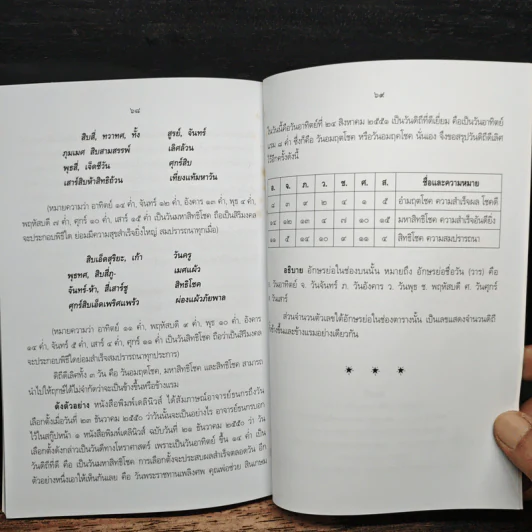 ๖๘
สิบสี่, ทวาทศ, ทั้ง สูรย์, จันทร์
ภุมเมศ สิบสามสรรพ์ เลิศล้วน
พุธสี่, เจ็ดชีวัน ศุกร์สิบ
เสาร์สิบห้าสิทธิถ้วน เที่ยงแท้มหาวัน
(หมายความว่า อาทิตย์ ๑๔ ค่ำ, จันทร์ ๑๒ ค่ำ, อังคาร ๑๓ ค่ำ, พุธ ๔ ค่ำ,
พฤหัสบดี ๗ ค่ำ, ศุกร์ ๑๐ ค่ำ, เสาร์ ๑๕ ค่ำ เป็นวันมหาสิทธิโชค ถือเป็นสิริมงคล
จะประกอบพิธีใด ย่อมมีความสุขสำเร็จยิ่งใหญ่ สมปรารถนาทุกเมื่อ)
สิบเอ็ดสุริยะ, เก้า วันครู
พุธทศ, สิบสี่ภู- เมศแผ้ว
จันทร์-ห้า, สี่เสาร์ชู สิทธิโชค
ศุกร์สิบเอ็ดเพริศแพร้ว ผ่องแผ้วภัยพาล
(หมายความว่า อาทิตย์ ๑๑ ค่ำ, พฤหัสบดี ๙ ค่ำ, พุธ ๑๐ ค่ำ, อังคาร
๑๔ ค่ำ, จันทร์ ๕ ค่ำ, เสาร์ ๔ ค่ำ, ศุกร์ ๑๑ ค่ำ เป็นวันสิทธิโชค ถือว่าเป็นสิริมงคล
จะประกอบพิธีใดย่อมสำเร็จสมปรารถนาทุกประการ)
ดิถีดีเลิศทั้ง ๓ วัน คือ วันอมฤตโชค, มหาสิทธิโชค และสิทธิโชค สามารถ
นำไปให้ฤกษ์ได้ไม่จำกัดว่าจะเป็นข้างขึ้นหรือข้างแรม
ดังตัวอย่าง หนังสือพิมพ์เดลินิวส์ ได้สัมภาษณ์อาจารย์ธนกรถึงวัน
เลือกตั้งเมื่อวันที่ ๒๓ ธันวาคม ๒๕๕๐ ว่าวันนั้นจะเป็นอย่างไร อาจารย์ธนกรบอก
ไว้ในสกู๊ปหน้า ๑ หนังสือพิมพ์เดลินิวส์ ฉบับวันที่ ๒๑ ธันวาคม ๒๕๕๐ ว่า วัน
เลือกตั้งดังกล่าวเป็นวันดีทางโหราศาสตร์ เพราะเป็นวันอาทิตย์ ขึ้น ๑๔ ค่ำ เป็น
วันดิถีที่ดี คือ เป็นวันมหาสิทธิโชค การเลือกตั้งจะประสบผลสำเร็จตลอดวัน อีก
ตัวอย่างหนึ่งเอาให้เห็นกันเลย คือ วันพระราชทานเพลิงศพ คุณพ่อช่วย
๖๙
ในวันนี้คือวันอาทิตย์ที่ ๒๔ สิงหาคม ๒๕๕๑ เป็นวันดิถีที่ดีเยี่ยม คือเป็นวันอาทิตย์
แรม ๘ ค่ำ ซึ่งก็คือ วันอมฤตโชค หรือวันอมฤตโชค นั่นเอง จึงขอสรุปวันดิถีดีเลิศ
ไว้อีกครั้งดังนี้
อ. จ. ภ. ว. ช. ศ. ส. ชื่อและความหมาย
๘ ๓ ๙ ๒ ๔ ๑ ๕ อำมฤตโชค ความสำเร็จผล โชคดี
๑๔ ๑๒ ๑๓ ๔ ๗ ๑๐ ๑๕ มหาสิทธิโชค ความสำเร็จอันดียิ่ง
๑๑ ๕ ๑๔ ๑๐ ๙ ๑๑ ๔ สิทธิโชค ความสมปรารถนา
อธิบาย อักษรย่อในช่องบนนั้น หมายถึง อักษรย่อชื่อวัน (วาร) คือ
อ. วันอาทิตย์ จ. วันจันทร์ ภ. วันอังคาร ว. วันพุธ ช. พฤหัสบดี ศ. วันศุกร์
ส. วันเสาร์
ส่วนจำนวนตัวเลขใต้อักษรย่อในช่องตารางนั้น เป็นเลขแสดงจำนวนดิถี
ข้างขึ้นและข้างแรมอย่างเดียวกัน
* * *